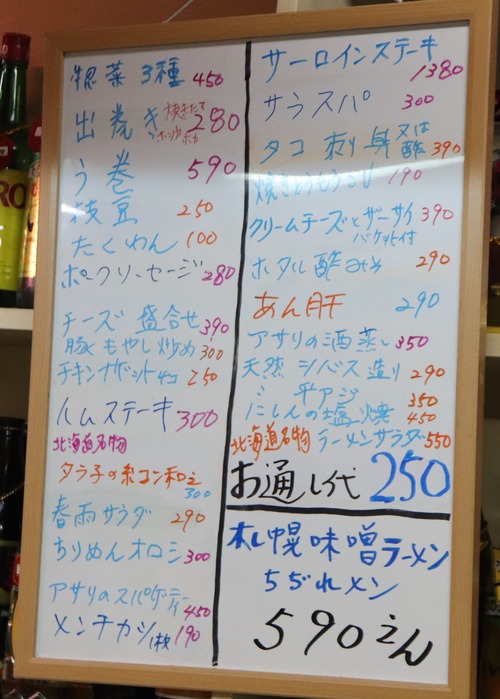 惣菜3種 450
出巻き 焼きたて ホッカホカ 280
う巻 590
枝豆 250
たくわん 100
ポークソーセージ 280
チーズ盛合せ 390
豚もやし炒め 300
チキンナゲット4コ 250
ハムステーキ 300
北海道名物
タラ子の糸コン和え 300
春雨サラダ 290
ちりめんオロシ 300
アサリのスパゲティー 450
メンチカツ 1枚 190
サーロインステーキ 1380
サラスパ 300
タコ刺り身 又は酢 390
焼きとうもろこし 190
クリームチーズとザーサイ 390
バケット付
ホタル酢みそ 290
あん肝 290
アサリの酒蒸し 350
天然シバス造り 290
〃 平アジ 350
にしんの塩焼 450
北海道名物 ラーメンサラダ 550
お通し代 250
札幌味噌ラーメン
ちぢれメン
590えん